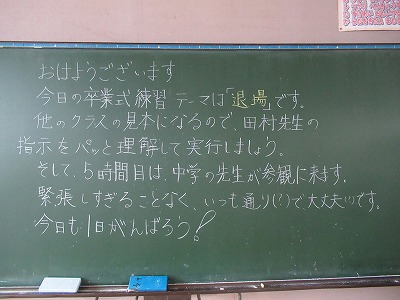 おはようございます
今日の卒業式練習 テーマは「退場」です。
他のクラスの見本になるので、田村先生の
指示をパッと理解して実行しましょう。
そして、5時間目は、中学の先生が参観に来ます。
緊張しすぎることなく、いつも通り(!)で大丈夫!!です。
今日も1日がんばろう!